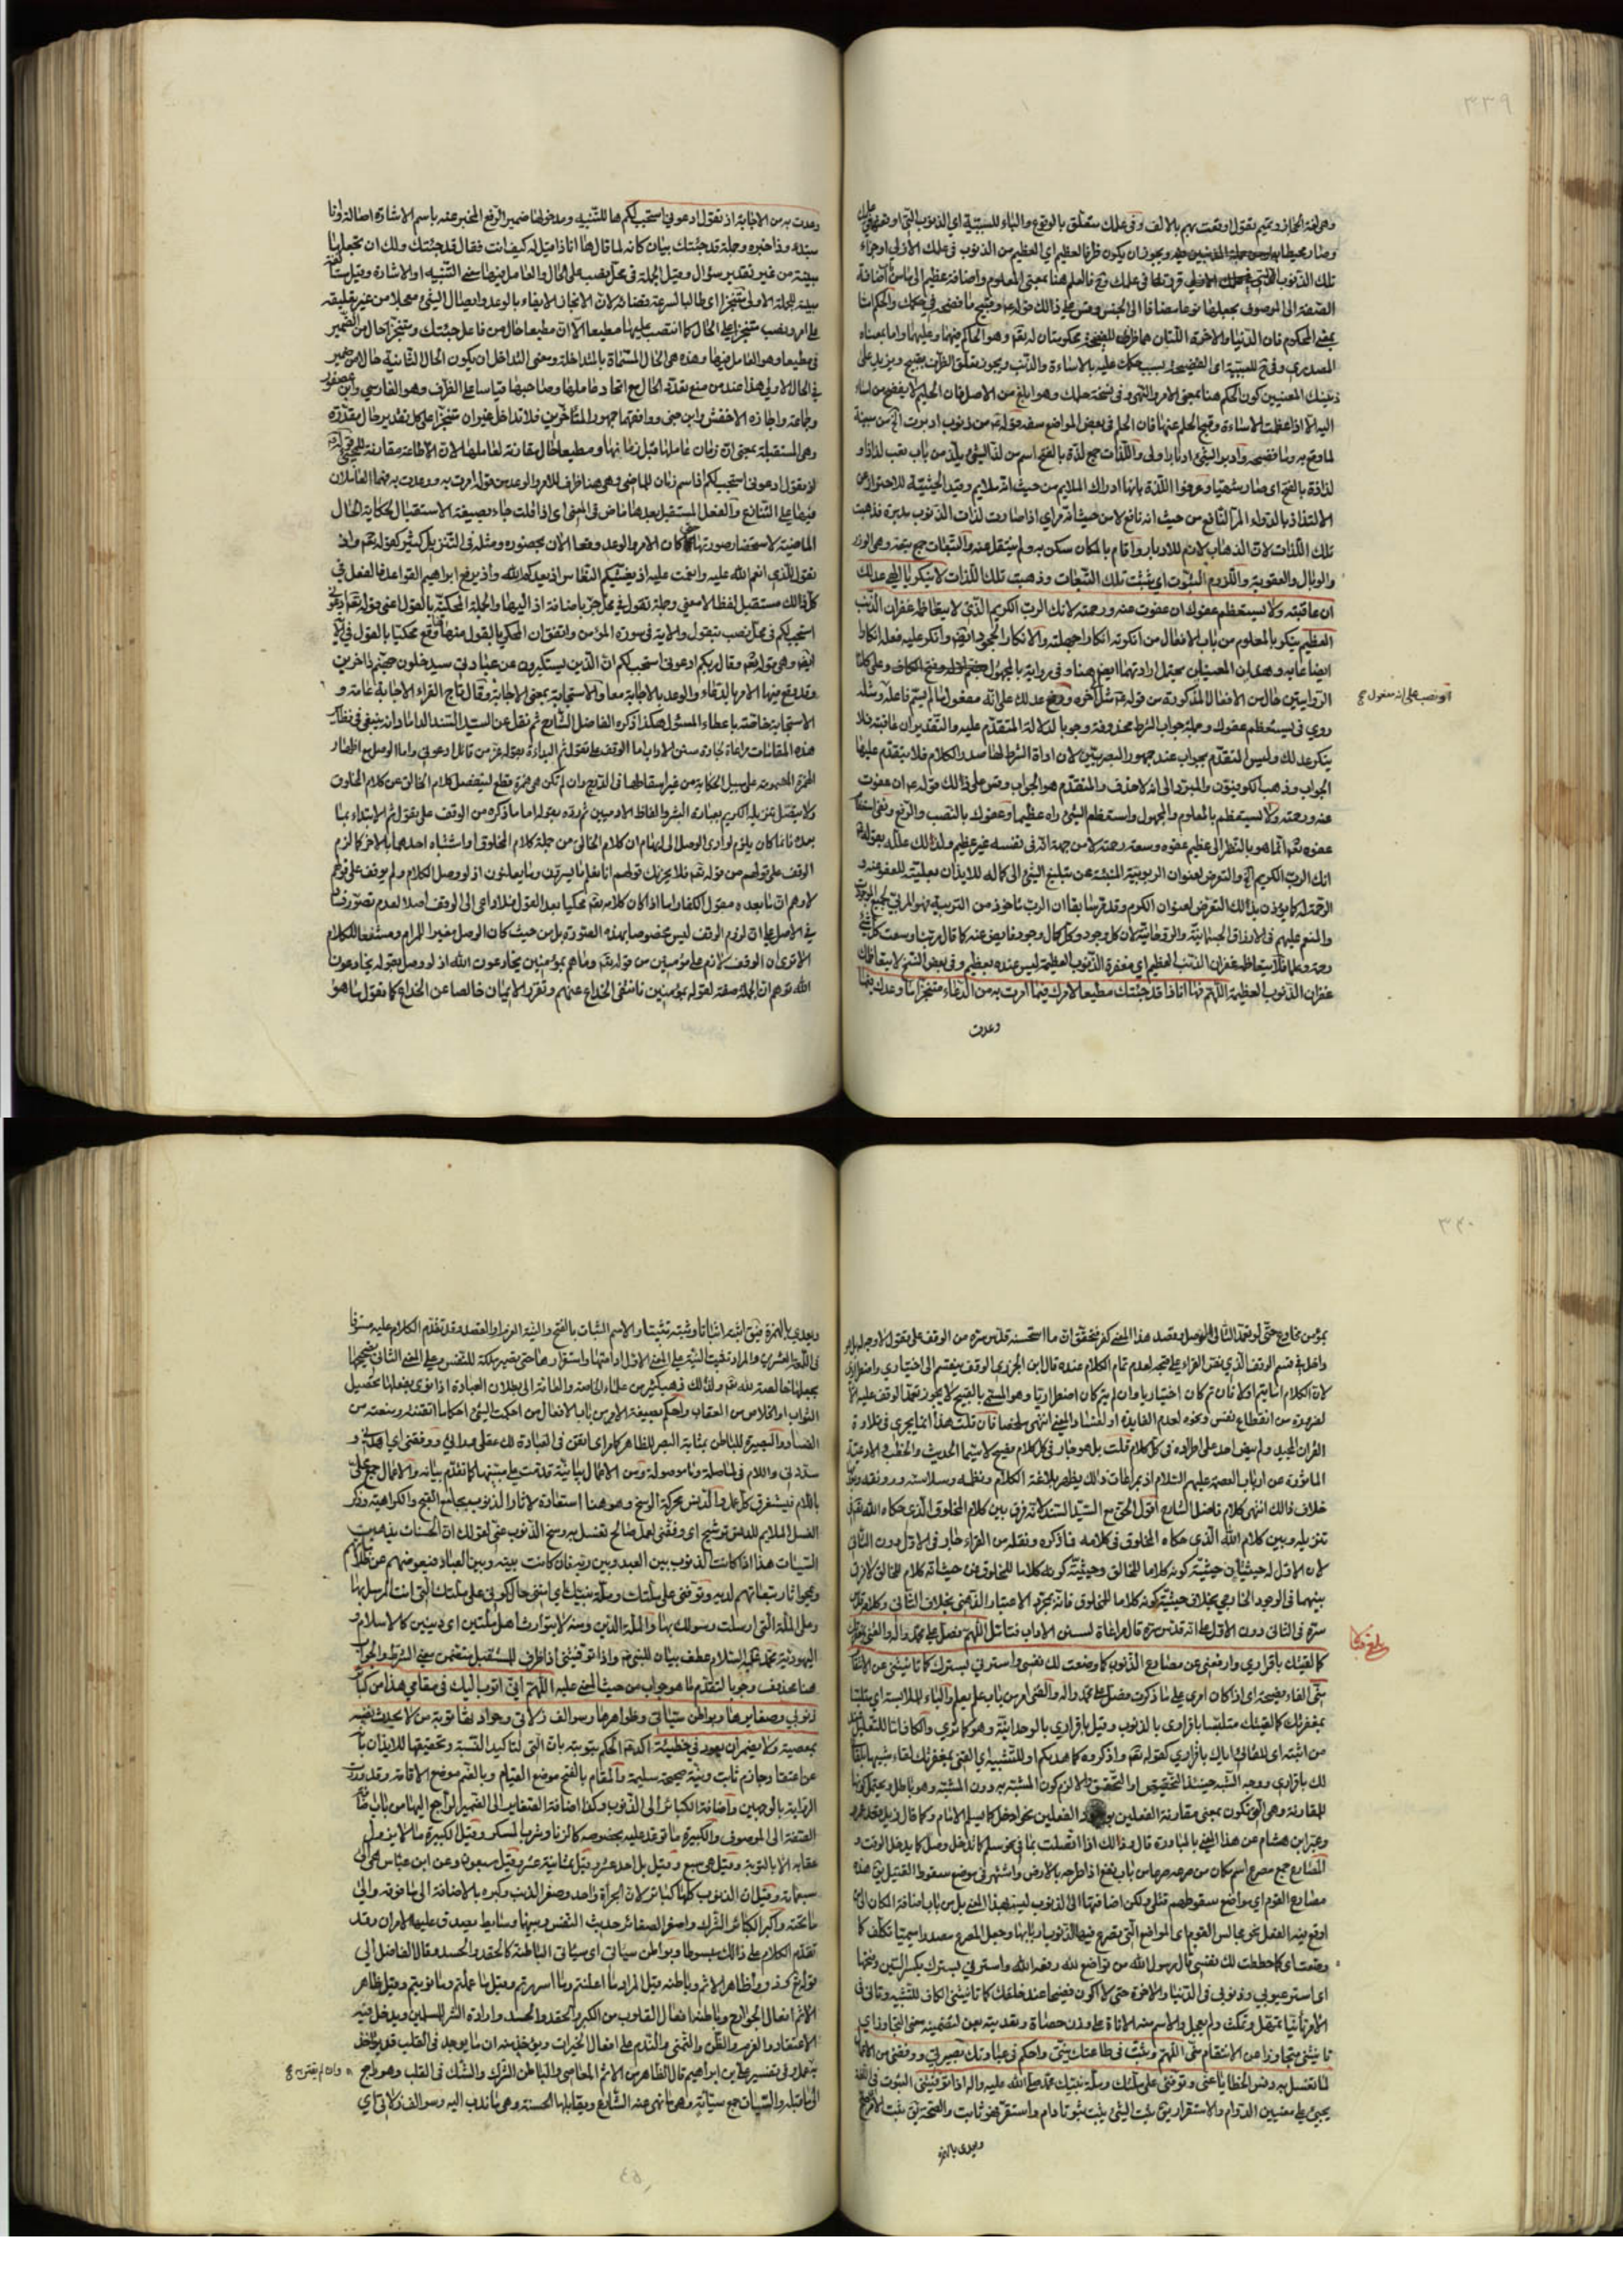 ٣٣٩
وهى لغة الحجاز وتميم تقول اوقعت بهم بالالف وفى علمك متعلق بالوقوع والباء للسببية اى الذنوب التى
تلك الذنوب
الصفة الى الموصوف بجعلها نوعا مضافا الى الجنس
بمعنى المحكوم فان الدنيا والاخرة اللتان هما ظرف للفضيحة محكومتان له تعالى وهو الحاكم فيهما وعليهما واما بمعناه
المصدرى وفى
ذينك المعنيين كون الحكم هنا بمعنى الامر والنهى وفى نسخة حلمك وهو ابلغ من الاصل فان الحليم لا يفضح من اساء
اليه الا اذا عظمت الاساءة وقبح الحلم عنها فان الحلم فى بعض المواضع سفه
واللذات جمع لذة بالفتح اسم من لذ الشىء يلذ من باب تعب لذاذا و
لذاذة بالفتح اى صار شهيا وعرفوا اللذة بانها ادراك الملايم من حيث انه ملايم وقيد الحيثية للاحتراز عن
الالتذاذ بالدواء المر النافع من حيث انه نافع لا من حيث انه مر اى اذا صارت لذات الذنوب مدبرة فذهبت
تلك اللذات لان الذهاب لازم للادبار واقام بالمكان سكن به ولم ينتقل عنه والتبعات جمع تبعة وهى الوزر
والوبال والعقوبة واللزوم الثبوت اى يثبت تلك التبعات وذهبت تلك اللذات لا ينكر يا الهى عدلك
ان عاقبته ولا يستعظم عفوك ان عفوت عنه ورحمته لانك الرب الكريم الذى لا يتعاظمه غفران الذنب
العظيم ينكر بالمعلوم من باب الافعال من انكرته انكارا جهلته والانكار الجحود ايضا وانكر عليه فعله انكارا
الروايتين حال من الافعال المذكورة من قوله
روى فى يستعظم عفوك وجملة جواب الشرط محذوفة وجوبا لدلالة المتقدم عليه والتقدير ان عاقبته فلا
ينكر عدلك وليس المتقدم بجواب عند جمهور البصريين لان اداة الشرط لها صدر الكلام فلا يتقدم عليها
الجواب وذهب الكوفيون والمبرد الى انه لا حذف والمتقدم هو الجواب وقس على ذلك قوله ان عفوت
عنه ورحمته ولا يستعظم بالمعلوم والمجهول واستعظم الشىء راه عظيما وعفوك بالنصب والرفع ونفى استعظام
عفوه تعالى انما هو بالنظر الى عظيم عفوه وسعة رحمته لا من جهة انه فى نفسه غير عظيم ولذلك علله بقوله
انك الرب الكريم الخ والتعرض لعنوان الربوبية المنبئة عن تبليغ الشىء الى كماله للايذان بعلية للعفو عنه و
الرحمة له كما يؤذن بذلك التعرض لعنوان الكرم وقد مر سابقا ان الرب ماخوذ من التربية فهو المربى لجميع الموجودات
والمنعم عليهم فى الارزاق الجسمانية والروحانية لان كل وجود وكل كمال وجود فايض عنه كما قال ربنا وسعت كل شىء
رحمة وعلما فلا يتعاظمه غفران الذنب العظيم اى مغفرة الذنوب العظيمة ليس عنده بعظيم وفى بعض النسخ لا يتعاظمك
غفران الذنوب العظيمة اللهم فها انا ذا قد جئتك مطيعا لامرك فيما امرت به من الدعاء متنجزا ما وعدك فيما
وعدت
او نصب على انه مفعول
وعدت به من الاجابة اذ تقول ادعونى استجب لكم ها للتنبيه ومدخولها ضمير الرفع المخبر عنه باسم الاشارة اصالة وانا
مبتداء وذا خبره وجملة قد جئتك بيان كانه لما قال ها انا ذا قيل له كيف انت فقال قد جئتك ولك ان تجعلها
مبينة من غير تقدير سؤال وقيل الجملة فى محل نصب على الحال والعامل فيها معنى التنبيه او الاشارة
مبينة للجملة الاولى متنجزا اى طالبا لسرعة قضائه لان الانجاز الايفاء بالوعد وايصال الشىء معجلا من غير تعليقه
على امر ونصب متنجزا على الحال كما انتصب عليها مطيعا الا ان مطيعا حال من فاعل جئتك ومتنجزا حال من الضمير
فى مطيعا وهو العامل فيها وهذه هى الحال المسماة بالمتداخلة ومعنى التداخل ان يكون الحال الثانية حالا من ضمير
فى الحال الاولى هذا عند من منع تعدد الحال مع اتحاد عاملها وصاحبها قياسا على الظرف وهو الفارسى وابن عصفور
وجماعة واجازه الاخفش وابن جنى ووافقهما جمهور المتاخرين فلا تداخل غير ان متنجزا على كل تقدير حال مقدرة
وهى المستقبلة بمعنى ان زمان عاملها قبل زمانها ومطيعا حال مقارنة لعاملها لان الاطاعة مقارنة للمجىء
اذ تقول ادعونى استجب لكم اذ اسم زمان للماضى وهى هنا ظرف للامر والوعد من قوله امرت به ووعدت به تنازعهما العاملان
فيها على التنازع والفعل المستقبل بعدها ماض فى المعنى اى اذ قلت جاء بصيغة الاستقبال لحكاية الحال
الماضية لاستحضار صورتها كان الامر والوعد وقعا الان بحضوره ومثله فى التنزيل كثير كقوله تعالى واذ
تقول للذى انعم الله عليه وانعمت عليه اذ يغشيكم النعاس واذ يعدكم الله واذ يرفع ابراهيم القواعد فالفعل فى
كل ذلك مستقبل لفظا لا معنى وجملة تقول فى محل جر باضافة اذ اليها والجملة المحكية بالقول اعنى قوله تعالى ادعونى
استجب لكم فى محل نصب بتقول والاية فى سورة المؤمن واتفق ان المحكى بالقول منها وقع محكيا بالقول فى الاية
ايضا وهى قوله تعالى وقال ربكم ادعونى استجب لكم ان الذين يستكبرون عن عبادتى سيدخلون جهنم داخرين
وقد وقع فيها الامر بالدعاء والوعد بالاجابة معا والاستجابة بمعنى الاجابة وقال تاج القراء الاجابة عامة و
الاستجابة خاصة باعطاء المسئول هكذا ذكره الفاضل الشارح ثم نقل عن السيد السند الداماد انه ينبغى فى نظاير
هذه المقامات مراعاة لجادة سنن الاداب اما الوقف على تقول ثم البداءة بقوله عز من قائل ادعونى واما الوصل مع اظهار
الهمزة المضمومة على سبيل الحكاية من غير اسقاطها فى الدرج وان لم تكن هى همزة قطع لينفصل كلام الخالق عن كلام المخلوق
ولا يتصل تنزيله الكريم بعبارة البشر والفاظ الادميين ثم رده بقوله اما ما ذكره من الوقف على تقول ثم الابتداء بما
بعده فانما كان يلزم لو ادى الوصل الى ايهام ان كلام الخالق من جملة كلام المخلوق او اشتباه احدهما بالاخر كما لزم
الوقف على قولهم من قوله تعالى فلا يحزنك قولهم انا نعلم ما يسرون وما يعلنون اذ لو وصل الكلام ولم يوقف على قولهم
لاوهم ان ما بعده مقول الكفار واما اذا كان كلامه تعالى محكيا بعد القول فلا داعى الى الوقف اصلا لعدم تصور فساد
فى الوصل على ان لزوم الوقف ليس مخصوصا بهذه الصورة بل من حيث كان الوصل مغيرا للمرام ومشنعا للكلام
الا ترى ان الوقف لازم على مؤمنين من قوله تعالى وما هم بمؤمنين يخادعون الله اذ لو وصل بقوله يخادعون
الله توهم ان الجملة صفة لقوله بمؤمنين فانتفى الخداع عنهم وتقرر الايمان خالصا عن الخداع كما تقول ما هو
٣٤٠
بمؤمن مخادع حتى لو تعمد التالى الوصل وقصد هذا المعنى كفر فتحقق ان ما استحسنه قدس سره من الوقف على تقول لا وجه له بل هو
داخل فى قسم الوقف الذى نص القراء على قبحه لعدم تمام الكلام عنده قال ابن الجزرى الوقف ينقسم الى اختيارى واضطرارى
لان الكلام اما يتم اولا فان تم كان اختياريا وان لم يتم كان اضطراريا وهو المسمى بالقبيح لا يجوز تعمد الوقف عليه الا
لضرورة من انقطاع نفس ونحوه لعدم الفايدة او لفساد المعنى انتهى ملخصا فان قلت هذا انما يجرى فى تلاوة
القران المجيد ولم ينص احد على اطراده فى كل كلام قلت بل هو جار فى كل كلام فصيح لا سيما الحديث والخطب والادعية
الماثورة عن ارباب العصمة عليهم السلام اذ بمراعات ذلك يظهر بلاغة الكلام ونظمه وسلاسته ورونقه
خلاف ذلك انتهى كلام فاضل الشارح اقول الحق مع السيد السند لانه فرق بين كلام المخلوق الذى حكاه الله تعالى فى
تنزيله وبين كلام الله الذى حكاه المخلوق فى كلامه فما ذكره ونقله من القراء جار فى الاول دون الثانى
لان الاول له حيثيتان حيثية كونه كلاما للخالق وحيثية كونه كلاما للمخلوق
بينهما فى الوجود الخارجى بخلاف حيثية كونه كلاما للمخلوق فانه بمجرد الاعتبار الذهنى بخلاف الثانى وكلامه قدس
سره فى الثانى دون الاول على انه قدس سره قال مراعاة لسنن الاداب فتامل اللهم فصل على محمد واله والقنى بمغفرتك
كما لقيتك باقرارى وارفعنى عن مصارع الذنوب كما وضعت لك نفسى واسترنى بسترك كما تانيتنى عن الانتقام
منى الفاء فصيحة اى اذا كان امرى على ما ذكرت فصل على محمد واله والقنى امر من باب علم يعلم والباء للملابسة اى متلبسا
بمغفرتك كما لقيتك متلبسا باقرارى بالذنوب وقيل باقرارى بالوحدانية وهو كما ترى والكاف اما للتعليل
من اثبته اى للقائى اياك باقرارى كقوله تعالى واذكروه كما هديكم او للتشبيه اى القنى بمغفرتك لقاء شبيها بلقائى
لك باقرارى ووجه الشبه حينئذ التحقيق او التحقق
للمقارنة وهى التى تكون بمعنى مقارنة الفعلين
وعبر ابن هشام عن هذا المعنى بالمبادرة قال وذلك اذا اتصلت بما فى نحو سلم كما تدخل وصل كما يدخل الوقت و
المصارع جمع مصرع اسم مكان من صرعه صرعا من باب نفع اذا طرحه بالارض واشتهر فى موضع سقوط القتيل يق هذه
مصارع القوم اى مواضع سقوطهم قتلى ولكن اضافتها الى الذنوب ليس بهذا المعنى بل من باب اضافة المكان الى ما
اوقع فيه الفعل نحو مجالس القوم اى المواضع التى يصرع فيها الذنوب اربابها وجعل المصرع مصدرا ميميا تكلف كما
وضعت اى كما حططت لك نفسى قال رسول الله من تواضع لله رفعه الله واسترنى بسترك بكسر السين وفتحها
اى استر عيوبى وذنوبى فى الدنيا والاخرة حتى لا اكون فضيحا عند خلقك كما تانيتنى الكاف للتشبيه وتانى فى
الامر تانيا تمهل وتمكث ولم يعجل والاسم منه الاناة على وزن حصاة وتعديته بعن لتضمينه معنى التجاوز اى
تانيتنى متجاوزا عن الانتقام منى اللهم وثبت فى طاعتك نيتى واحكم فى عبادتك بصيرتى ووفقنى من الاعمال
لما تغسل به دنس الخطايا عنى وتوفنى على ملتك وملة نبيك محمد صلى الله عليه واله اذا توفيتنى الثبوت فى اللغة
يجىء على معنيين الدوام والاستقرار يق ثبت الشىء يثبت ثبوتا دام واستقر فهو ثابت والصحة يق ثبت الامر صح
ويعدى بالهمزة
بلغ مقابلة
ويعدى بالهمزة فيق اثبته اثباتا وثبته تثبيتا والاسم الثبات بالفتح والنية العزم والقصد وقد تقدم الكلام عليه مستوفا
والمراد تثبيت النية على المعنى الاول ادامتها واستقرارها حتى يصير ملكة للنفس وعلى المعنى الثانى تصحيحها
بجعلها خالصة لله تعالى ولذلك ذهب كثير من علماء الخاصة والعامة الى بطلان العبادة اذا نوى بفعلها تحصيل
الثواب او الخلاص من العقاب واحكم بصيغة الامر من باب الافعال من احكمت الشىء احكاما اتقنته ومنعته من
الفساد والبصيرة للباطن بمثابة البصر للظاهر كما مر اى اتقن فى العبادة لك عقلى
سددنى واللام فى لما صلة وما موصولة ومن الاعمال بيانية قدمت على مبينها كما تقدم بيانه والاعمال جمع محلى
باللام فيستغرق كل عمل والدنس محركة الوسخ وهو هنا استعارة لاثار الذنوب بجامع القبح والكراهية وذكر
الغسل الملايم للدنس ترشيح اى وفقنى لعمل صالح تغسل به وسخ الذنوب عنى لقولك ان الحسنات يذهبن
السيئات هذا اذا كانت الذنوب بين العبد وبين ربه فان كانت بينه وبين العباد فيعوضهم عن ظلامتهم
ويمحو اثار تبعاتهم لديه وتوفنى على ملتك وملة نبيك اى امتنى حالكونى على ملتك التى انت المرسل بها
وعلى الملة التى ارسلت رسولك بها والملة الدين ومنه لا يتوارث اهل ملتين اى دينين كالاسلام و
اليهودية محمد عليه السلام عطف بيان للنبى واذا توفيتنى اذا ظرف للمستقبل متضمن معنى الشرط والجواب
هنا محذوف وجوبا لتقدم ما هو جواب من حيث المعنى عليه اللهم انى اتوب اليك فى مقامى هذا من كبائر
ذنوبى وصغايرها وبواطن سيئاتى وظواهرها وسوالف زلاتى وحوادثها توبة من لا يحدث نفسه
بمعصية ولا يضمر ان يعود فى خطيئة اكد الحكم بتوبته بان التى لتاكيد النسبة وتحقيقها للايذان بانه
عن اعتقاد جازم ثابت ونية صحيحة سليمة والمقام بالفتح موضع القيام وبالضم موضع الاقامة وقد وردت
الرواية بالوجهين واضافة الكبائر الى الذنوب وكذا اضافة الصغاير الى الضمير الراجع اليها من باب اضافة
الصفة الى الموصوف والكبيرة ما توعد عليه بخصوصه كالزنا وشرب المسكر وقيل الكبيرة ما لا يزول
عقابه الا بالتوبة وقيل هى سبع وقيل بل احد عشر وقيل ثمانية عشر وقيل سبعون وعن ابن عباس هى الى
سبعمائة وقيل ان الذنوب كلها كبائر لان الجرأة واحد وصغر الذنب وكبره بالاضافة الى ما فوقه والى
ما تحته واكبر الكبائر الشرك واصغر الصغائر حديث النفس وبينهما وسايط يصدق عليها الامران وقد
تقدم الكلام على ذلك مبسوطا وبواطن سيئاتى اى سيئاتى الباطنة كالحقد والحسد وقال الفاضل الى
قوله وذروا ظاهر الاثم وباطنه قيل المراد ما اعلنتم وما اسررتم وقيل ما عملتم وما نويتم وقيل ظاهر
الاثم افعال الجوارح وباطنه افعال القلوب من الكبر والحقد والحسد وارادة الشر للمسلمين ويدخل فيه
الاعتقاد والعزم والظن والتمنى والندم على افعال الخيرات ويؤخذ منه ان ما يوجد فى القلب قد يؤاخذ
به وفى تفسير على بن ابراهيم قال الظاهر من الاثم المعاصى والباطن الشرك والشك فى القلب وهو راجع
الى ما قبله والسيئات جمع سيئة وهى ما نهى عنه الشارع ويقابلها الحسنة وهى ما ندب اليه وسوالف زلاتى اى